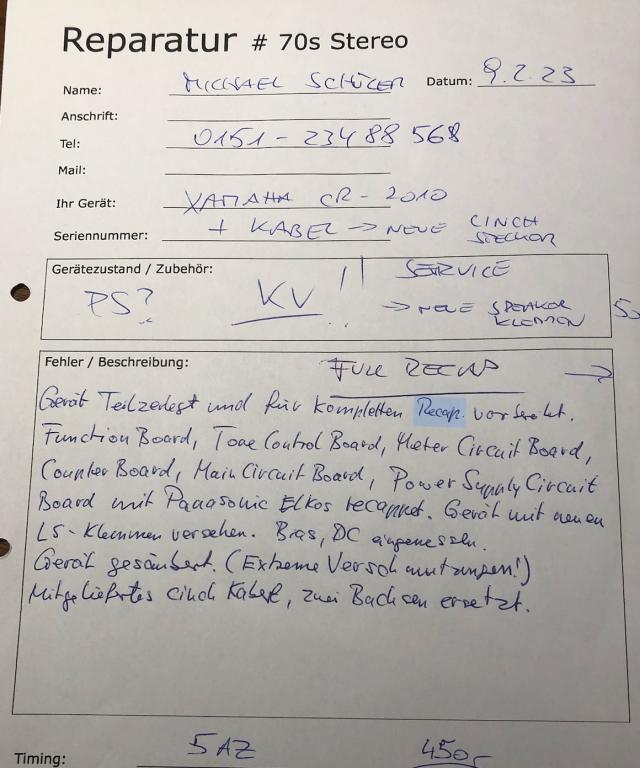 Reparatur # 70s Stereo
Name: MICHAEL SCHÜLER Datum: 9.2.23
Anschrift:
Tel: 0151 - 234 88 568
Mail:
Ihr Gerät: YAMAHA CR - 2010
Seriennummer: + KABEL → NEUE CINCH STECKER
Gerätezustand / Zubehör: SERVICE
PS? KV !! → NEUE SPEAKER KLEMMEN
Fehler / Beschreibung: FULL RECAP →
Gerät Teilzerlegt und für kompletten Recap. vorbereitet.
Function Board, Tone Control Board, Meter Circuit Board,
Counter Board, Main Circuit Board, Power Supply Circuit
Board mit Panasonic Elkos recappet. Gerät mit neuen
LS-Klemmen versehen. Bias, DC eingemessen.
Gerät gesäubert. (Extreme Verschmutzungen!)
Mitgeliefertes Cinch Kabel, zwei Buchsen ersetzt.
Timing: 5 AZ 450,-